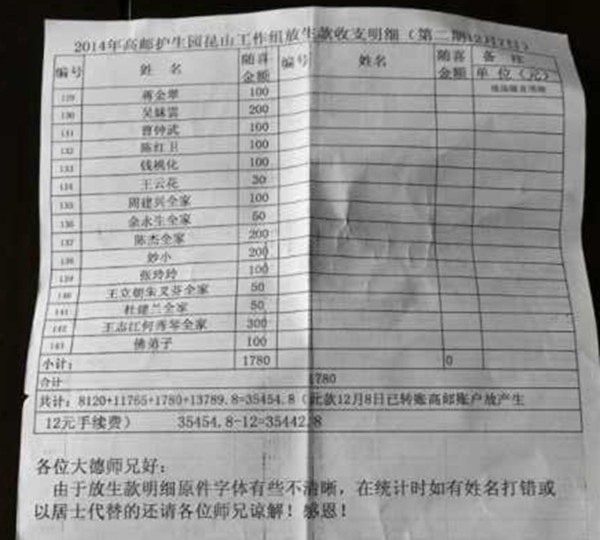 2014年高邮护生园昆山工作组放生款收支明细(第二期12月7日)
编号 姓 名 随喜金额 编号 姓名 随喜金额 备 注 单 位(元)
129 蒋金翠 100
130 吴妹雲 200
131 曹钟武 100
132 陈红卫 100
133 钱桃化 100
134 王云花 30
135 周建兴全家 100
136 余永生全家 50
137 陈杰全家 200
138 妙小 200
139 张玲玲 100
140 王立朝朱叉芬全家 50
141 杜健兰全家 50
142 王志江何秀琴全家 300
143 佛弟子 100
小计: 1780 0
合计 1780
共计:8120+11765+1780+13789.8=35454.8(此款12月8日已转账高邮账户放产生
12元手续费) 35454.8-12=35442.8
各位大德师兄好:
由于放生款明细原件字体有些不清晰,在统计时如有姓名打错或
以居士代替的还请各位师兄谅解!感恩!